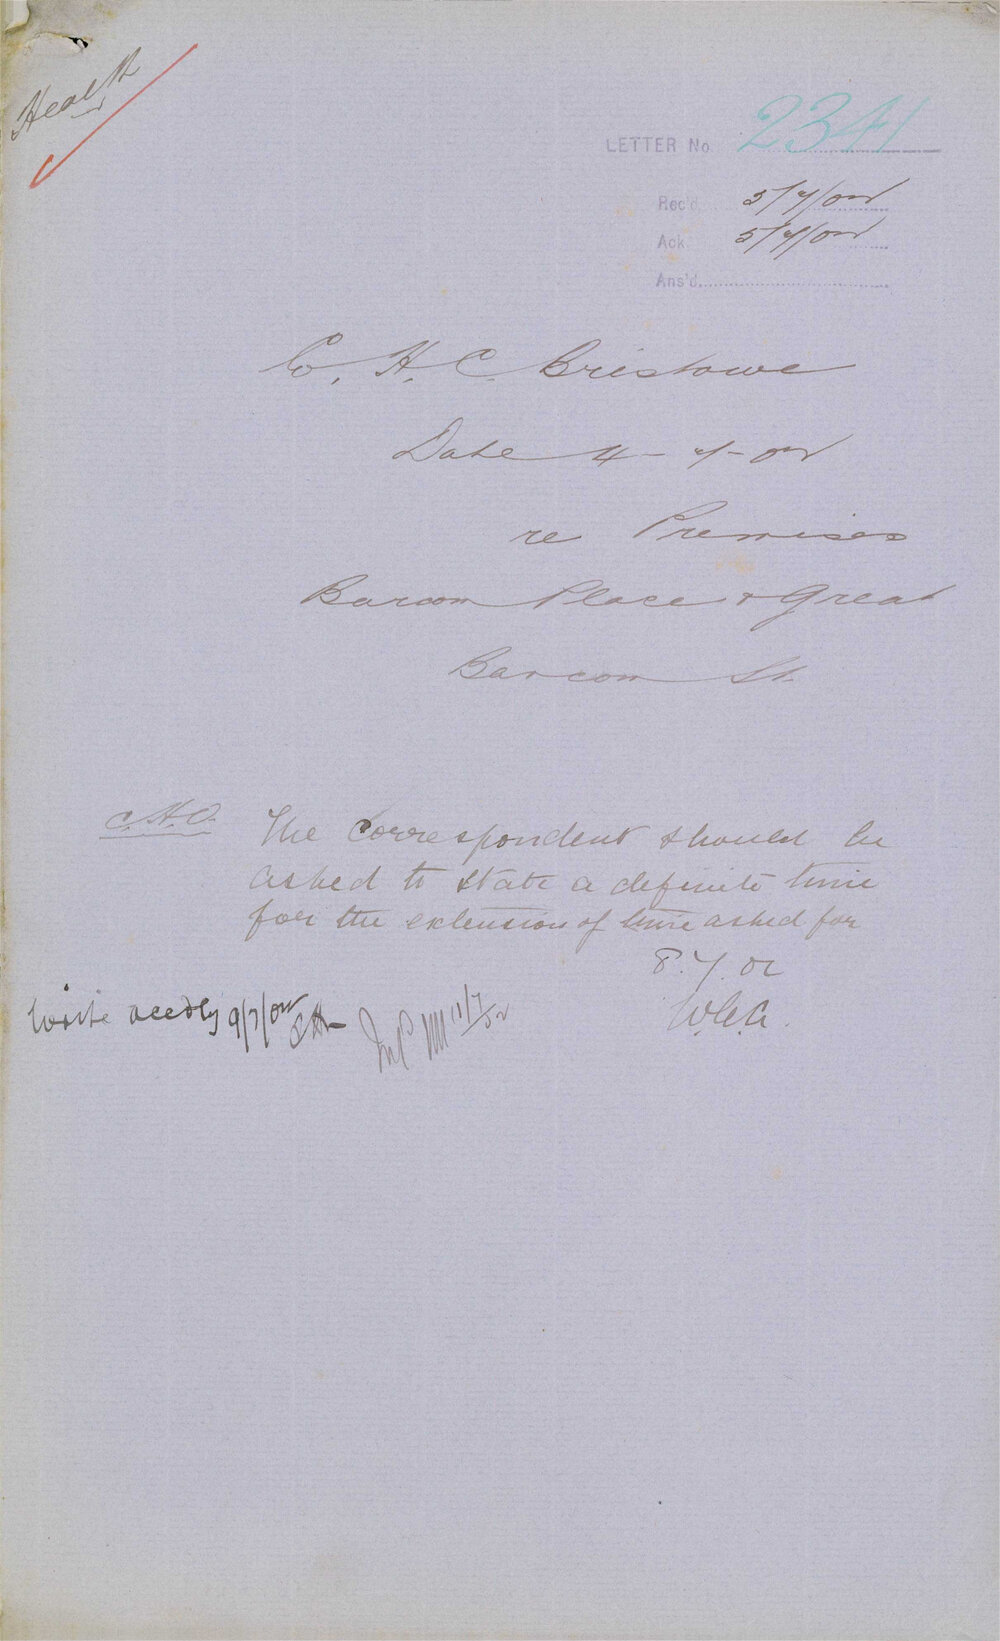 Health
LETTER No 2341
Rec'd 5/7/02
Ack 5/7/02
Ans'd
H. C. Bristowe
Date 4-7-02
re Premises
Barcom Place & Great
Barcom St.
C.H.O. The Correspondent should be
asked to state a definite time
for the extension of time asked for
8.7.02
W.G.A.
Write accdly 9/7/02
11/7/02